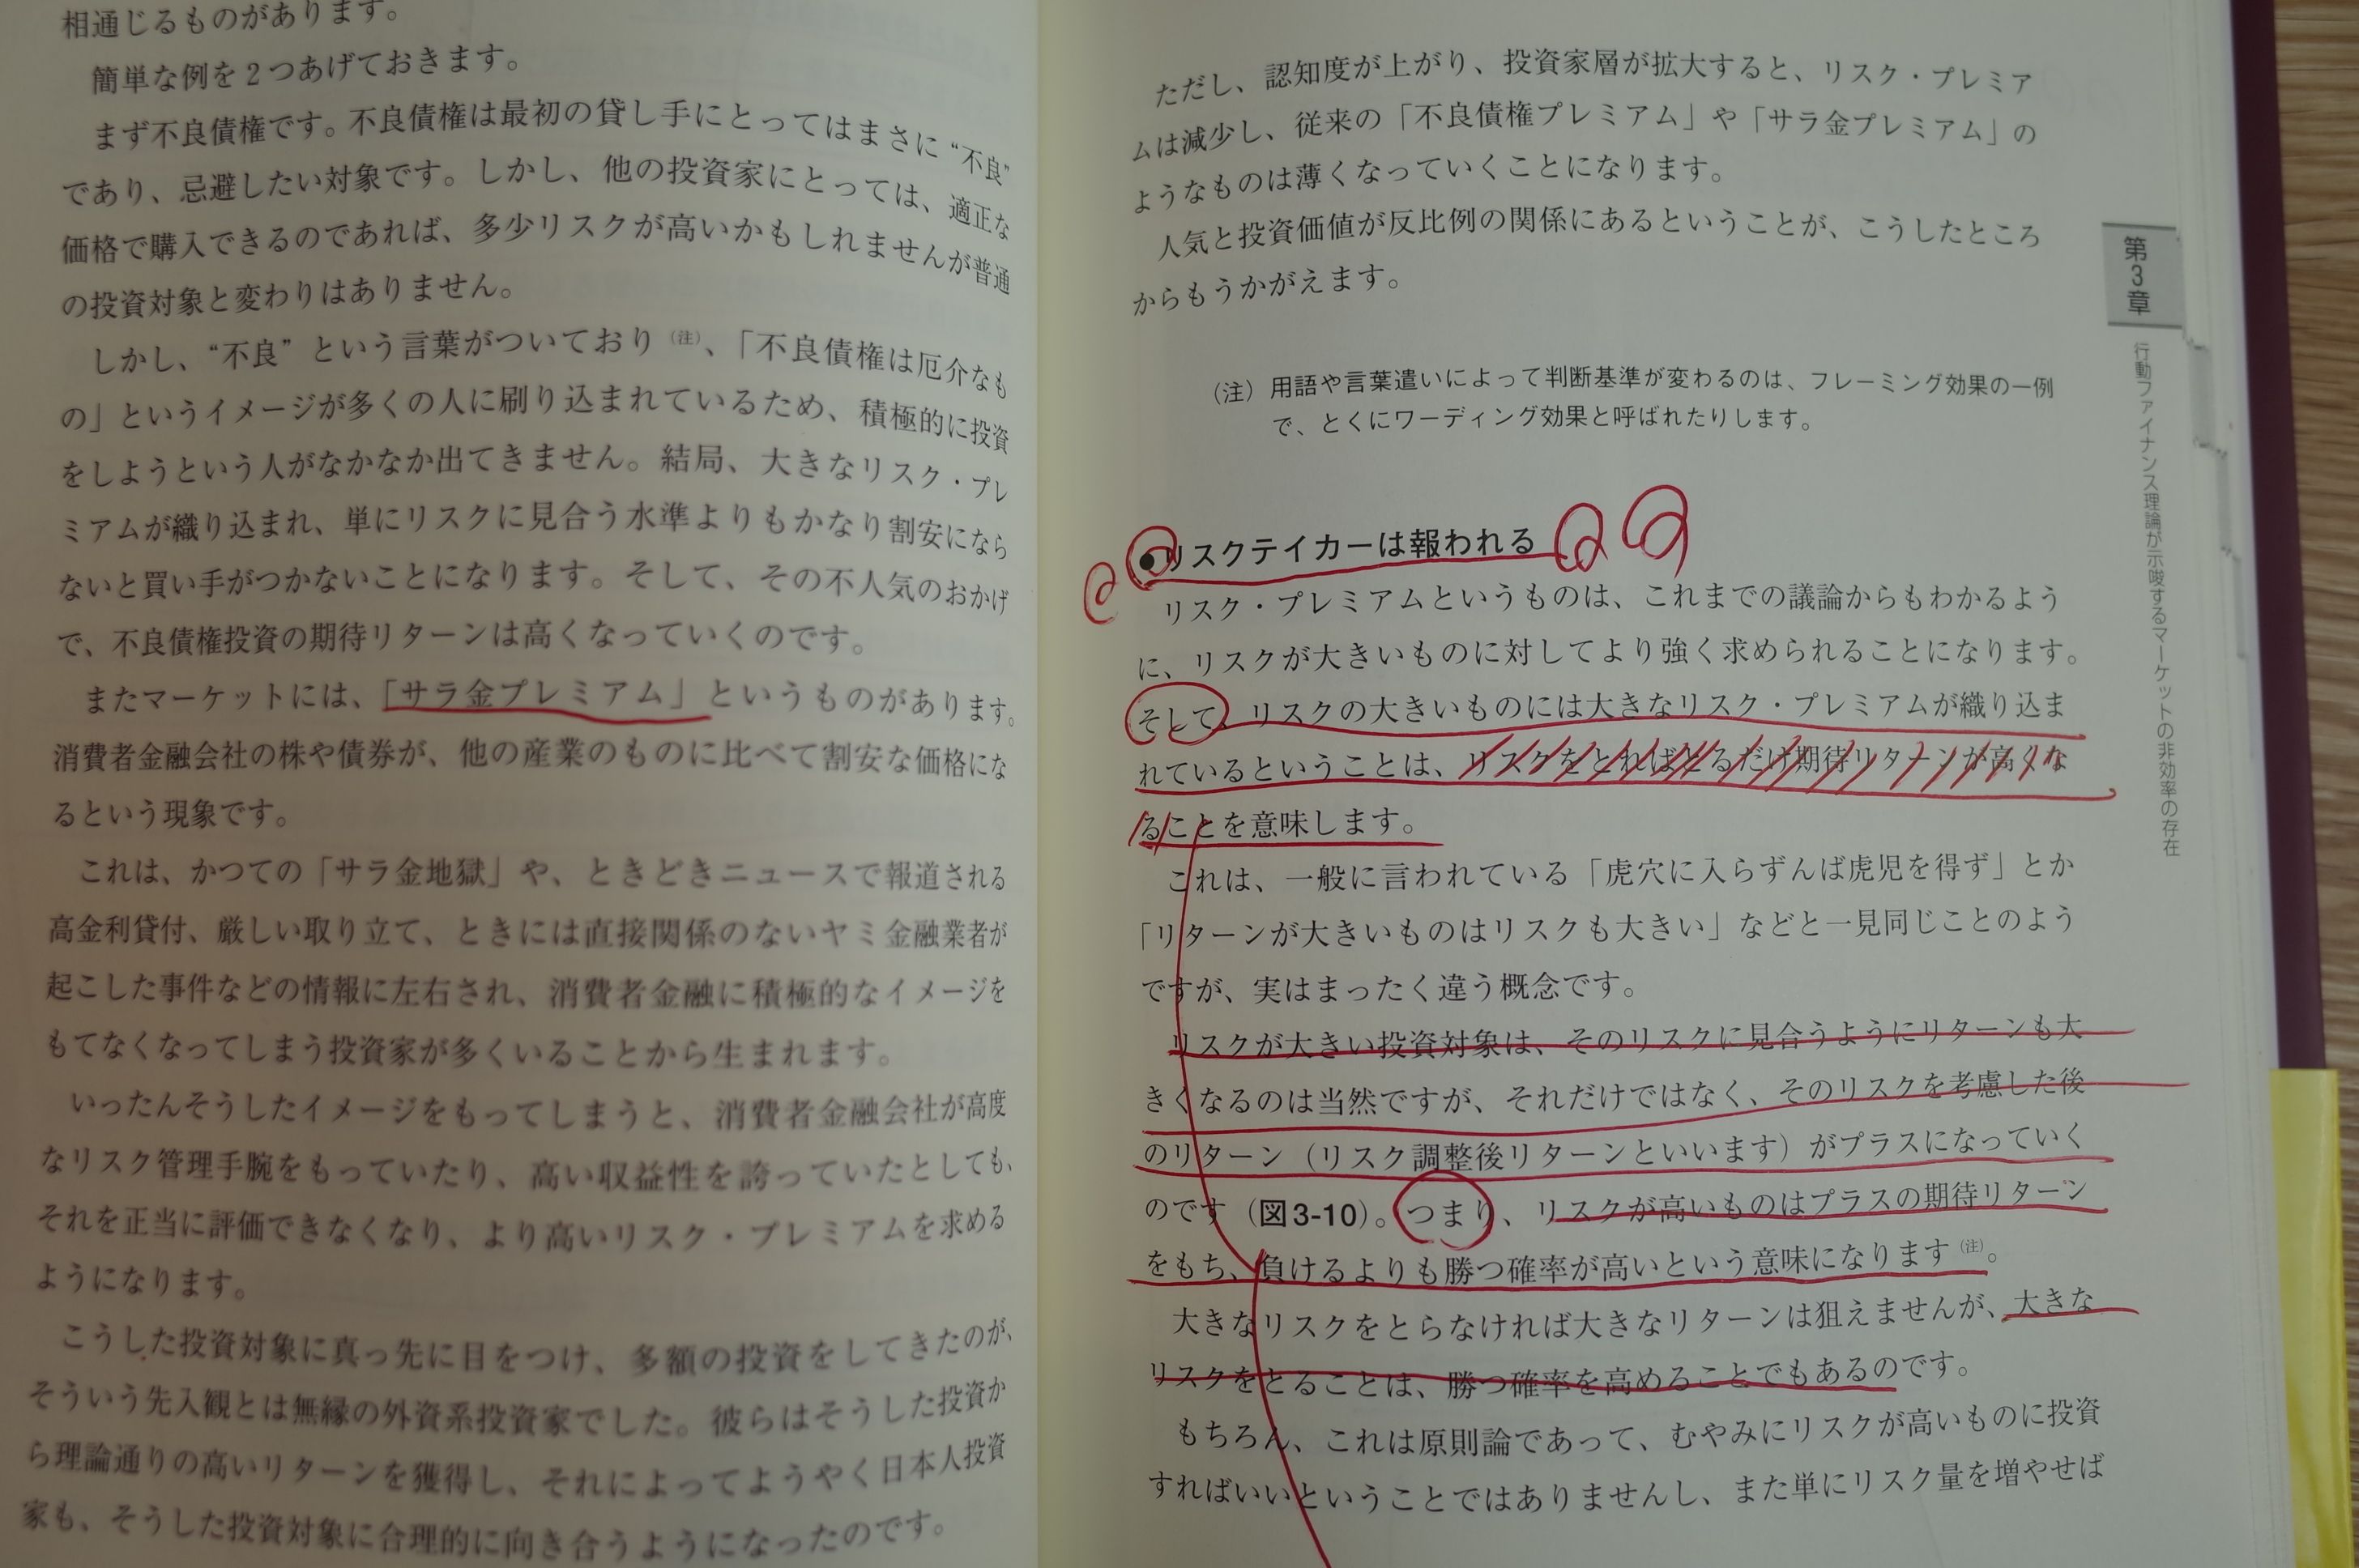 相通じるものがあります。
簡単な例を2つあげておきます。
まず不良債権です。不良債権は最初の貸し手にとってはまさに“不良”
であり、忌避したい対象です。しかし、他の投資家にとっては、適正な
価格で購入できるのであれば、多少リスクが高いかもしれませんが普通
の投資対象と変わりはありません。
しかし、“不良”という言葉がついており（注）、「不良債権は厄介なも
の」というイメージが多くの人に刷り込まれているため、積極的に投資
をしようという人がなかなか出てきません。結局、大きなリスク・プレ
ミアムが織り込まれ、単にリスクに見合う水準よりもかなり割安になら
ないと買い手がつかないことになります。そして、その不人気のおかげ
で、不良債権投資の期待リターンは高くなっていくのです。
またマーケットには、「サラ金プレミアム」というものがあります。
消費者金融会社の株や債券が、他の産業のものに比べて割安な価格にな
るという現象です。
これは、かつての「サラ金地獄」や、ときどきニュースで報道される
高金利貸付、厳しい取り立て、ときには直接関係のないヤミ金融業者が
起こした事件などの情報に左右され、消費者金融に積極的なイメージを
もてなくなってしまう投資家が多くいることから生まれます。
いったんそうしたイメージをもってしまうと、消費者金融会社が高度
なリスク管理手腕をもっていたり、高い収益性を誇っていたとしても、
それを正当に評価できなくなり、より高いリスク・プレミアムを求める
ようになります。
こうした投資対象に真っ先に目をつけ、多額の投資をしてきたのが、
そういう先入観とは無縁の外資系投資家でした。彼らはそうした投資か
ら理論通りの高いリターンを獲得し、それによってようやく日本人投資
家も、そうした投資対象に合理的に向き合うようになったのです。
ただし、認知度が上がり、投資家層が拡大すると、リスク・プレミア
ムは減少し、従来の「不良債権プレミアム」や「サラ金プレミアム」の
ようなものは薄くなっていくことになります。
人気と投資価値が反比例の関係にあるということが、こうしたところ
からもうかがえます。
（注）用語や言葉遣いによって判断基準が変わるのは、フレーミング効果の一例
で、とくにワーディング効果と呼ばれたりします。
●リスクテイカーは報われる
リスク・プレミアムというものは、これまでの議論からもわかるよう
に、リスクが大きいものに対してより強く求められることになります。
そして、リスクの大きいものには大きなリスク・プレミアムが織り込ま
れているということは、リスクをとればとるだけ期待リターンが高くな
ることを意味します。
これは、一般に言われている「虎穴に入らずんば虎児を得ず」とか
「リターンが大きいものはリスクも大きい」などと一見同じことのよう
ですが、実はまったく違う概念です。
リスクが大きい投資対象は、そのリスクに見合うようにリターンも大
きくなるのは当然ですが、それだけではなく、そのリスクを考慮した後
のリターン（リスク調整後リターンといいます）がプラスになっていく
のです（図3-10）。つまり、リスクが高いものはプラスの期待リターン
をもち、負けるよりも勝つ確率が高いという意味になります（注）。
大きなリスクをとらなければ大きなリターンは狙えませんが、大きな
リスクをとることは、勝つ確率を高めることでもあるのです。
もちろん、これは原則論であって、むやみにリスクが高いものに投資
すればいいということではありませんし、また単にリスク量を増やせば
第3章
行動ファイナンス理論が示唆するマーケットの非効率の存在